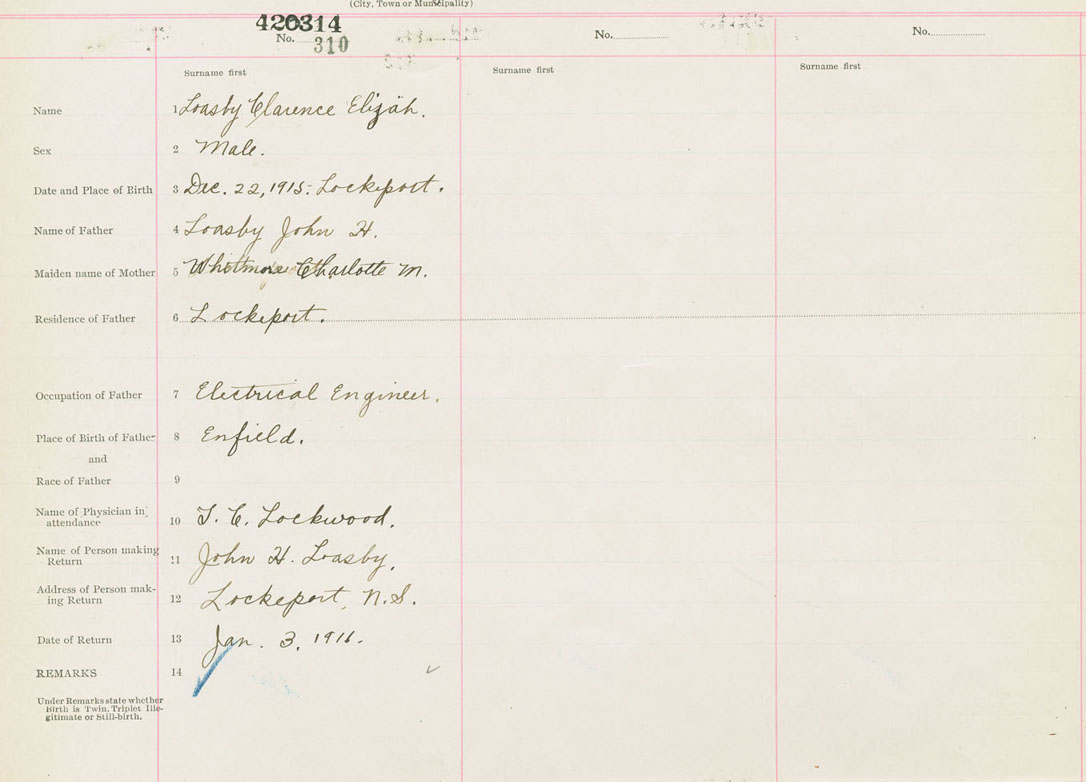 (City, Town or Municipality)
420314
No. 310
No.
No.
Surname first
Surname first
Surname first
Name 1 Loasby Clarence Elijah.
Sex 2 Male.
Date and Place of Birth 3 Dec. 22, 1915. Lockeport.
Name of Father 4 Loasby John H.
Maiden name of Mother 5 Whitmore Charlotte M.
Residence of Father 6 Lockeport.
Occupation of Father 7 Electrical Engineer.
Place of Birth of Father 8 Enfield.
and
Race of Father 9
Name of Physician in
attendance 10 T. C. Lockwood.
Name of Person making
Return 11 John H. Loasby.
Address of Person mak-
ing Return 12 Lockeport, N.S.
Date of Return 13 Jan. 3, 1916.
REMARKS 14
Under Remarks state whether
Birth is Twin, Triplet Ille-
gitimate or Still-birth.